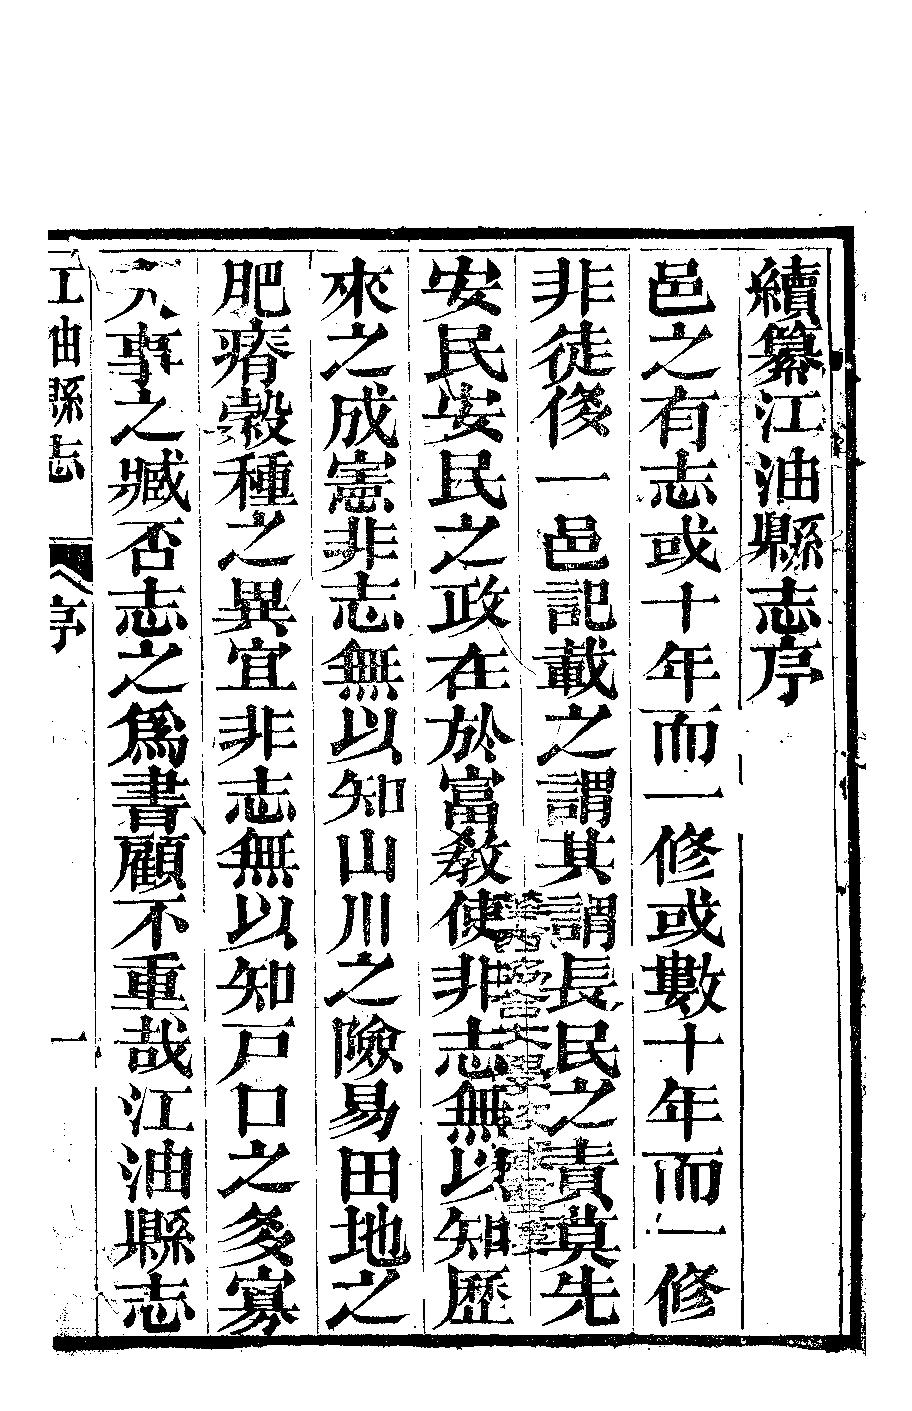 續纂江油縣志序
邑之有志或十年而一修或數十年而一修
非徒俻一邑記載之謂其謂長民之責莫先
安民安民之政在於富教使非志無以知歷
來之成憲非志無以知山川之險易田地之
肥瘠穀種之異宜非志無以知戸口之多寡
人事之臧否志之爲書顧不重哉江油縣志
江油縣志
序
一